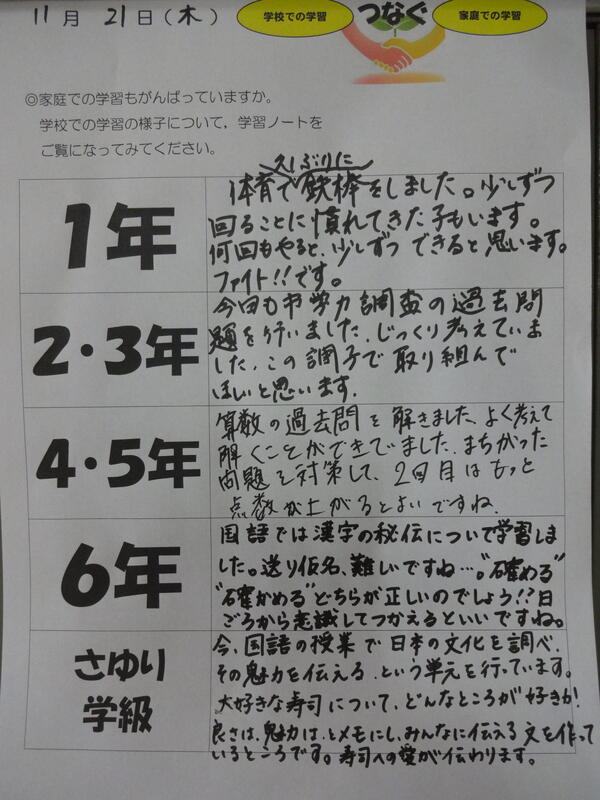 11月 21日(木)
学校での学習 つなぐ 家庭での学習
◎家庭での学習もがんばっていますか。
学校での学習の様子について，学習ノートを
ご覧になってみてください。
1年
久しぶりに
体育で鉄棒をしました。少しずつ
回ることに慣れてきた子もいます。
何回もやると、少しずつできると思います。
ファイト!!です。
2・3年
今回も市学力調査の過去問
題を行いました。じっくり考えていま
した。この調子で取り組んで
ほしいと思います。
4・5年
算数の過去問を解きました。よく考えて
解くことができでました。まちがった
問題を対策して、2回目はもっと
点数が上がるとよいですね。
6年
国語では漢字の秘伝について学習しま
した。送り仮名、難しいですね…。"確める"
"確かめる"どちらが正しいのでしょう!?日
ごろから意識してつかえるといいですね。
さゆり
学級
今、国語の授業で日本の文化を調べ、
その魅力を伝える、という単元を行っています。
大好きな寿司について、どんなところが好きか!
良さは、魅力は、とメモにし、みんなに伝える文を作って
いるところです。寿司への愛が伝わります。